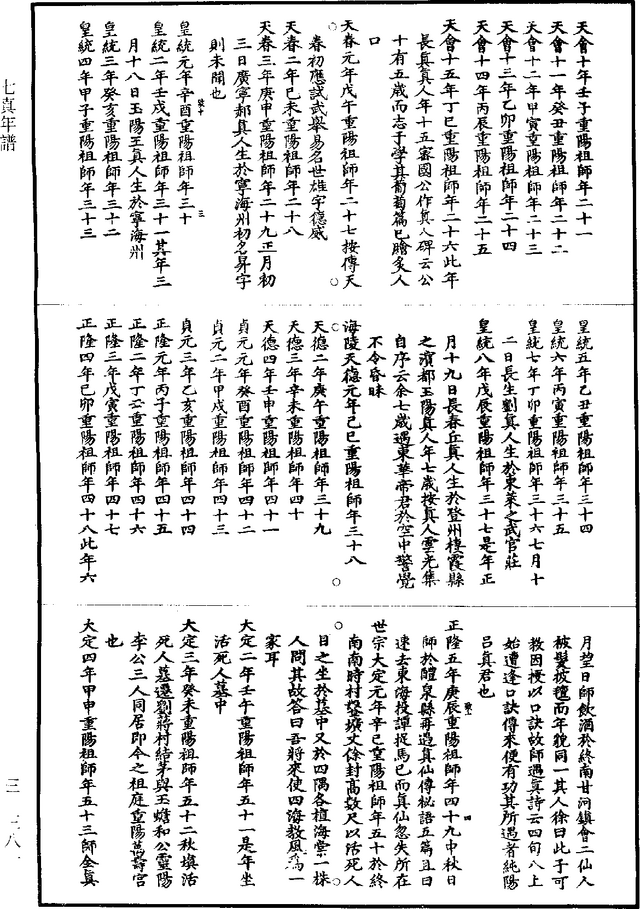 天會十年壬子重陽祖師年二十一
天會十一年癸丑重陽祖師年二十二
天會十二年甲寅重陽祖師年二十三
天會十三年乙卯重陽祖師年二十四
天會十四年丙辰重陽祖師年二十五
天會十五年丁巳重陽祖師年二十六此年
長真真人年十五審國公作真人碑云公
十有五歲而志于學其葡萄篇已膾炙人
口
天眷元年戊午重陽祖師年二十七按傳天
眷初應試武舉易名世雄字德威
天眷二年己未重陽祖師年二十八
天眷三年庚申重陽祖師年二十九正月初
三日廣寧郝真人生於寧海州初名昇字
則未聞也
皇統元年辛酉重陽祖師年三十
皇統二年壬戌重陽祖師年三十一其年三
月十八日玉陽王真人生於寧海州
皇統三年癸亥重陽祖師年三十二
皇統四年甲子重陽祖師年三十三
皇統五年乙丑重陽祖師年三十四
皇統六年丙寅重陽祖師年三十五
皇統七年丁卯重陽祖師年三十六七月十
二日長生劉真人生於東萊之武官莊
皇統八年戊辰重陽祖師年三十七是年正
月十九日長春丘真人生於登州棲霞縣
之濱都玉陽真人年七歲按真人雲光集
自序云余七歲遇東華帝君於空中警覺
不令昏昧
海陵天德元年己巳重陽祖師年三十八
天德二年庚午重陽祖師年三十九
天德三年辛未重陽祖師年四十
天德四年壬申重陽祖師年四十一
貞元元年癸酉重陽祖師年四十二
貞元二年甲戌重陽祖師年四十三
貞元三年乙亥重陽祖師年四十四
正隆元年丙子重陽祖師年四十五
正隆二年丁丑重陽祖師年四十六
正隆三年戊寅重陽祖師年四十七
正隆四年己卯重陽祖師年四十八此年六
月望日師飲酒於終南甘河鎮會二仙人
被髮披氈而年貌同一其人徐曰此子可
教因授以口訣故師遇真詩云四旬八上
始遭逢口訣傳來便有功其所遇者純陽
呂真君也
正隆五年庚辰重陽祖師年四十九中秋日
師於醴泉縣再遇真仙傳秘語五篇且曰
速去東海投譚捉馬已而真仙忽失所在
世宗大定元年辛巳重陽祖師年五十於終
南南時村鑿壙丈餘封高數尺以活死人
目之坐於墓中又於四隅各植海棠一株
人問其故答曰吾將來使四海教風為一
家耳
大定二年壬午重陽祖師年五十一是年坐
活死人墓中
大定三年癸未重陽祖師年五十二秋填活
死人墓遷劉蔣村結茅與玉蟾和公靈陽
李公三人同居即今之祖庭重陽萬壽宮
也
大定四年甲申重陽祖師年五十三師全真
七真年譜
三 三八一